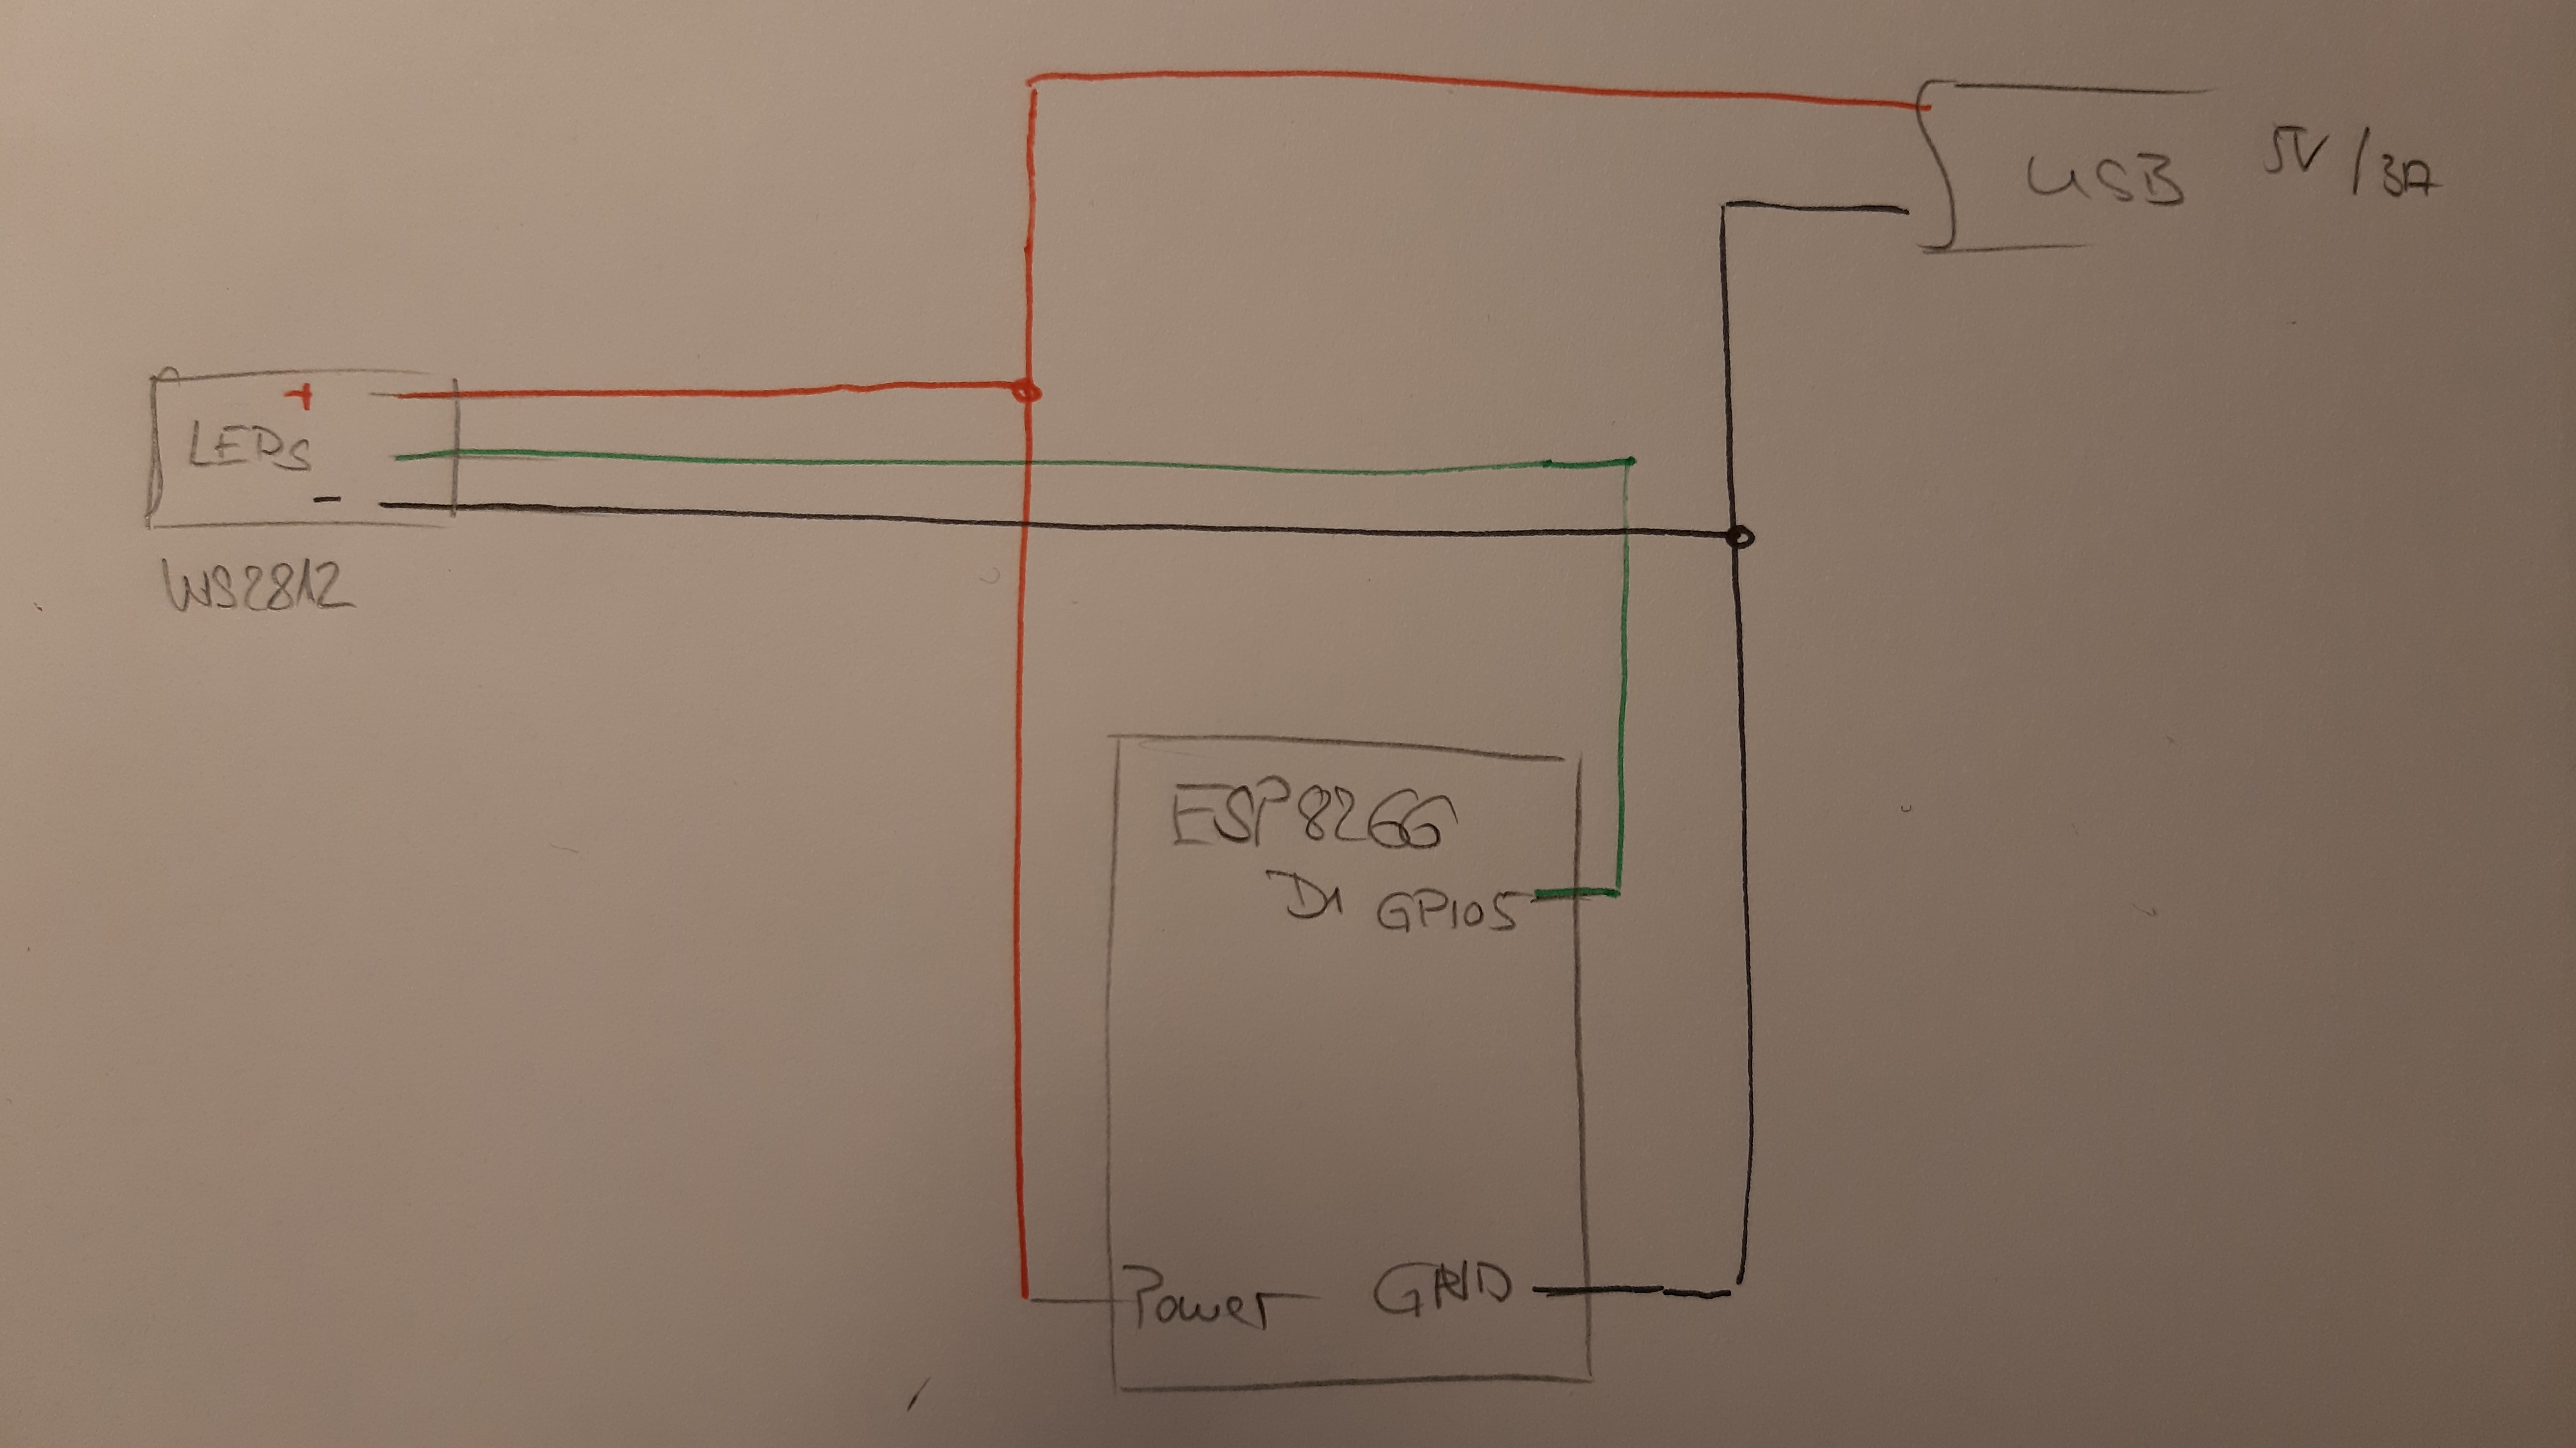 USB 5V / 3A
+
LEDs
-
WS2812
ESP8266
D1 GPIO5
Power GND